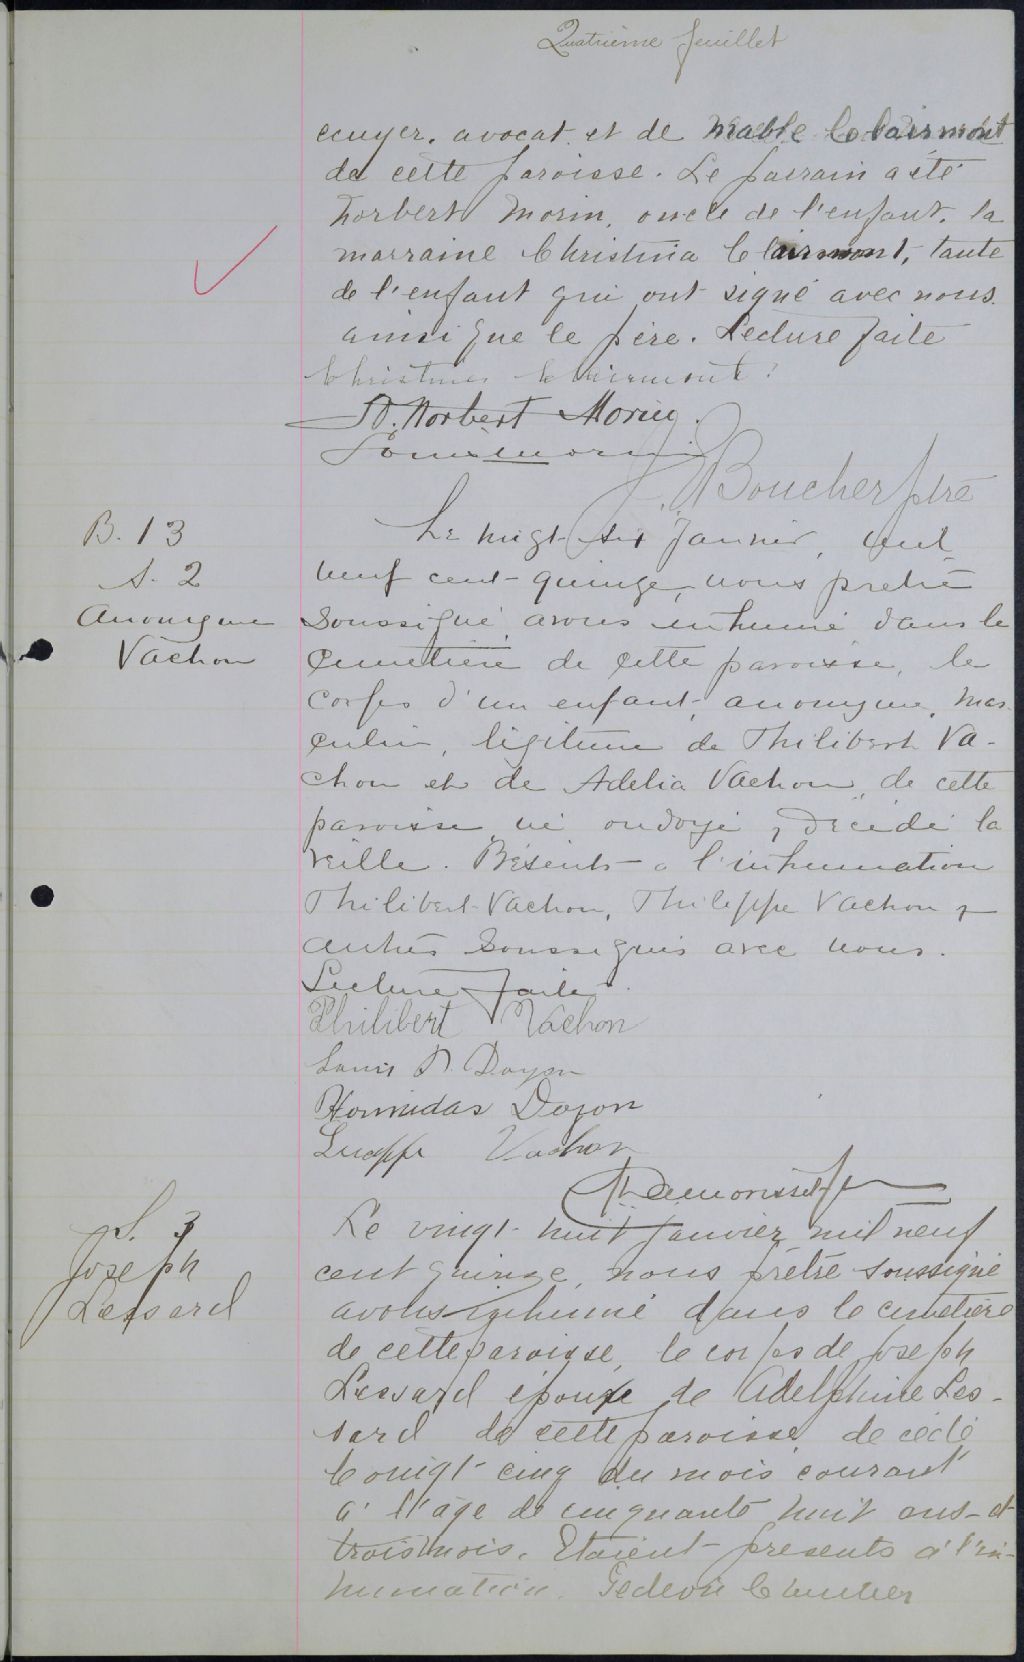 Quatrième feuillet
ecuyer, avocat et de Mable Clairmont
de cette paroisse. Le parrain a été
Norbert Morin, oncle de l'enfant, la
marraine Christina Clairmont, tante
de l'enfant qui ont signé avec nous
ainsi que le père. Lecture faite
Christina Clairmont
Norbert Morin
Louis Morin
J. Boucher ptre
B. 13
S. 2
Anonyme
Vachon
Le vingt-six Janvier, mil
neuf cent-quinze, nous pretre
soussigné avons inhumé dans le
cemetière de cette paroisse, le
corps d'un enfant, anonyme, mas
culin, légitime de Philibert Va-
chon et de Adelia Vachon, de cette
paroisse, né ondoyé & décédé la
veille. Présents à l'inhumation
Philibert Vachon, Philippe Vachon &
autres soussignés avec nous.
Lecture faite.
Philibert Vachon
Louis P. Doyon
Hormidas Doyon
Vachon
S. 3
Joseph
Lessard
Le vingt-huit Janvier mil neuf
cent quinze, nous prêtre soussigné
avons inhumé dans le cimetière
de cette paroisse, le corps de Joseph
Lessard époux de Adelphine Les-
sard de cette paroisse, decédé
le vingt-cinq du mois courant
à l'âge de cinquante huit ans et
trois mois. Etaient présents à l'in-
humation Gedeon Cloutier